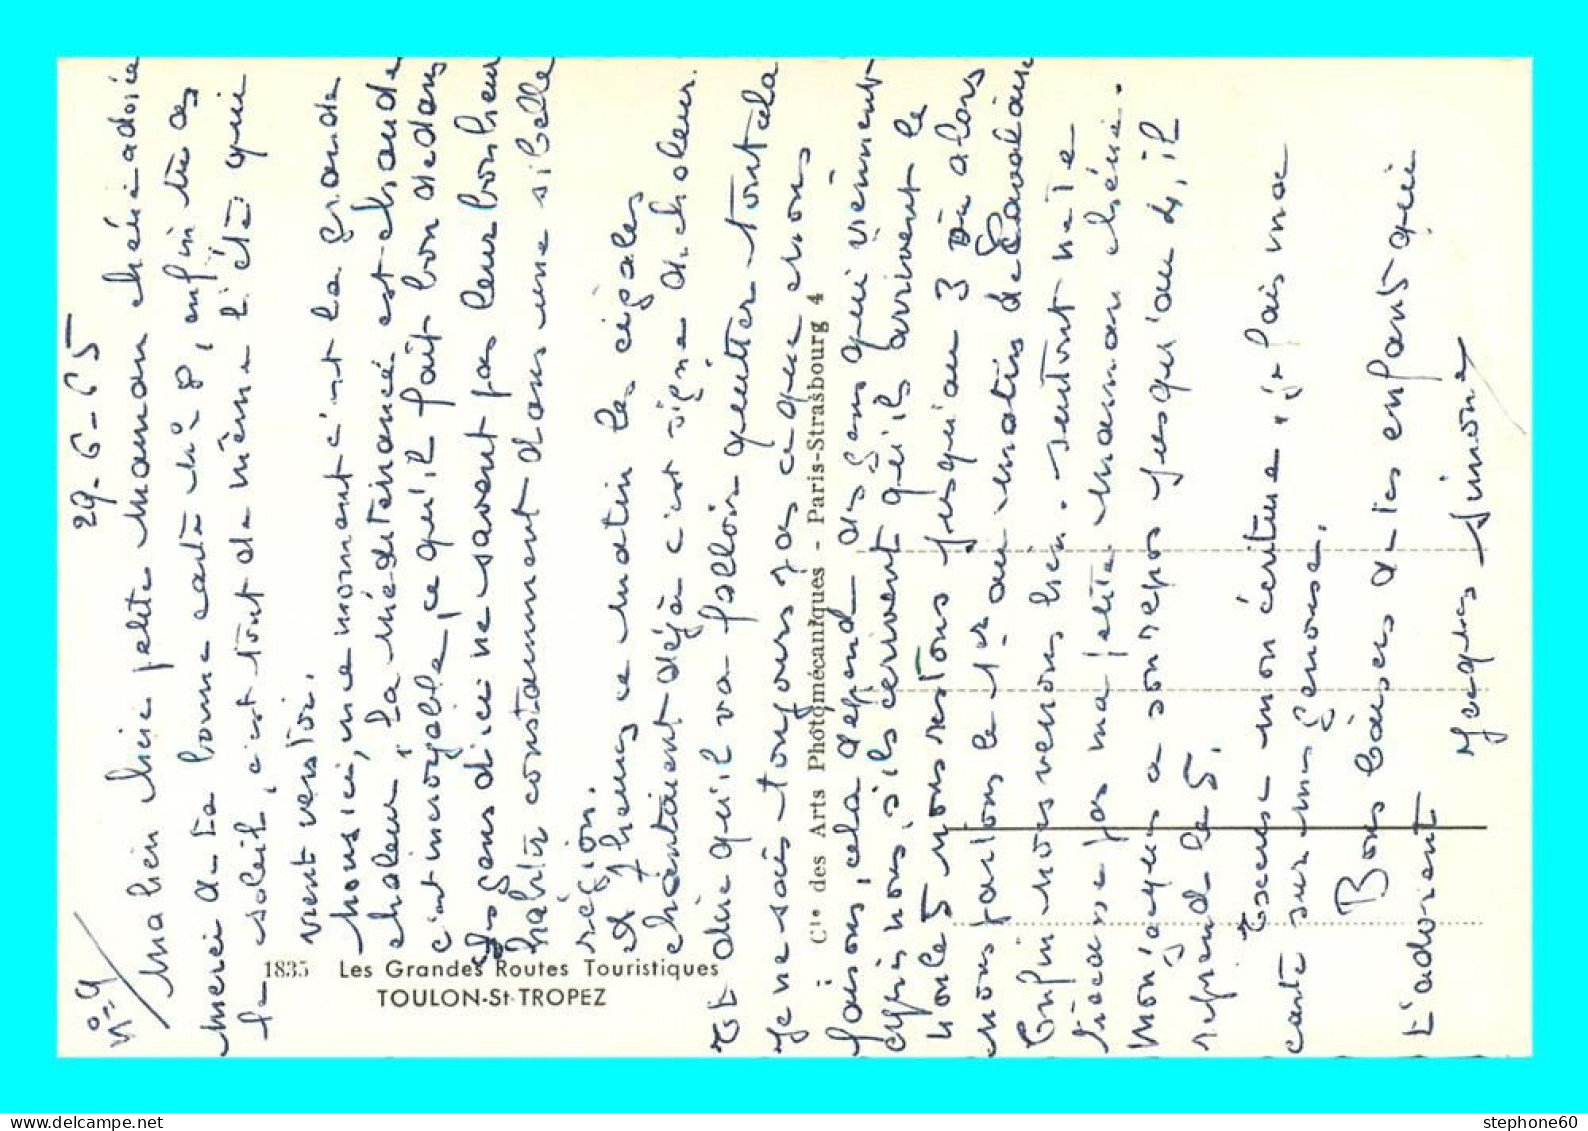 n° 9
29-6-65
Ma bien chère petite Maman chérie adorée
merci de ta bonne carte n° 8, enfin tu as
le soleil, c'est tout de même l'été qui
vient vers toi.
Nous ici, en ce moment c'est la grande
chaleur, la méditerranée est chaude
c'est incroyable, ce qu'il fait bon dedans
les gens d'ici ne savent pas leur bonheur
habiter constamment dans une si belle
région.
A 7 heures ce matin les cigales
chantaient déjà c'est signe de chaleur.
Et dire qu'il va falloir quitter tout cela
Je ne sais toujours pas ce que nous
faisons, cela dépend des gens qui viennent
après nous, s'ils écrivent qu'ils arrivent le
5 nous restons jusqu'au 3 ou alors
nous partons le 1er au matin de Cavalaire
Enfin nous verrons bien. Surtout ne te
tracasse pas ma petite Maman chérie.
Mon Jacques a son repos jusqu'au 4, il
reprend le 5.
Excuse mon écriture, je fais ma
carte sur mes genoux.
Bons baisers de tes enfants qui
t'adorent
Jacques Simone
1835 Les Grandes Routes Touristiques
TOULON-St-TROPEZ
Cie des Arts Photomécaniques - Paris-Strasbourg 4
stephone60